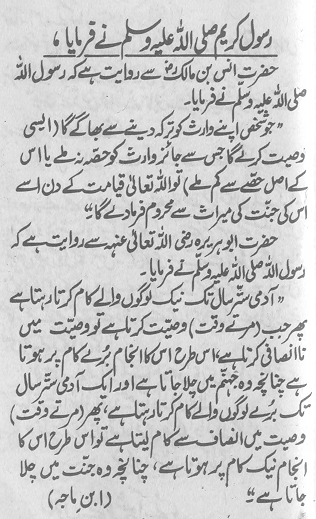 رسول کریم صلی اللہ علیہ وسلم نے فرمایا،
حضرت انس بن مالکؓ سے روایت ہے کہ رسول اللہ
صلی اللہ علیہ وسلم نے فرمایا۔
"جو شخص اپنے وارث کو ترکہ دینے سے بھاگے گا (ایسی
وصیت کرے گا جس سے جائز وارث کو حصہ نہ ملے یا اس
کے اصل حصے سے کم ملے) تو اللہ تعالیٰ قیامت کے دن اسے
اس کی جنت کی میراث سے محروم فرمادے گا۔"
حضرت ابو ہریرہ رضی اللہ تعالیٰ عنہہ سے روایت ہے کہ
رسول اللہ صلی اللہ علیہ وسلم نے فرمایا۔
"آدمی ستر سال تک نیک لوگوں والے کام کرتا رہتا ہے
پھر جب (مرتے وقت) وصیت کرتا ہے تو وصیت میں
ناانصافی کرتا ہے، اس طرح اس کا انجام برے کام پر ہوتا
ہے چنانچہ وہ جہنم میں چلا جاتا ہے اور ایک آدمی ستر سال
تک برے لوگوں والے کام کرتا رہتا ہے، پھر (مرتے وقت)
وصیت میں انصاف سے کام لیتا ہے تو اس طرح اس کا
انجام نیک کام پر ہوتا ہے، چنانچہ وہ جنت میں چلا
جاتا ہے۔" (ابن ماجہ)